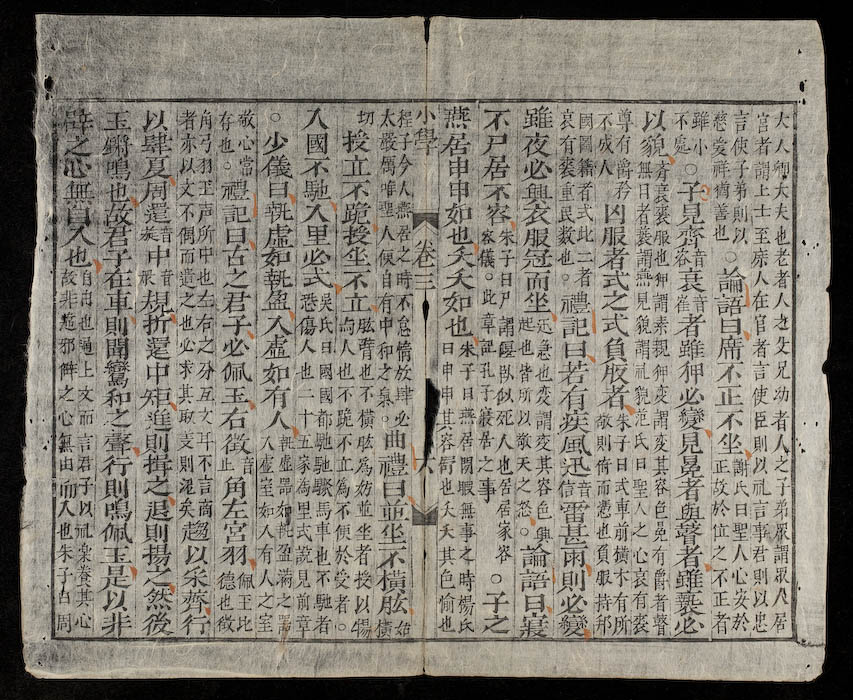 大人卿大夫也老者人之父兄幼者人之子弟眾謂眾人居
官者謂上士至庶人在官者言使臣則以礼言事君則以忠
言使子弟則以慈愛祥猶善也○論語曰席不正不坐謝氏曰聖人心安於正故於位之不正者
雖小不處○子見齊音咨衰音崔者雖狎必變見冕者與瞽者雖褻必
以貌齊衰喪服也狎謂素親狎變謂變其容色冕有爵者瞽無目者褻謂燕見貌謂礼貌范氏曰聖人之心哀有喪
尊有爵矜不成人凶服者式之式負版者朱子曰式車前橫木有所敬則俯而憑也負版持邦
國圖籍者式此二者哀有喪重民數也○禮記曰若有疾風迅音信雷甚雨則必變
雖夜必興衣服冠而坐迅急也變謂變其容色興起也皆所以敬天之怒○論語曰寢
不尸居不容朱子曰尸謂偃臥似死人也居居家容容儀○此章記孔子寢居之事○子之
燕居申申如也夭夭如也朱子曰燕居閒暇無事之時楊氏曰申申其容舒也夭夭其色愉也
小學 卷三 六
程子今人燕居之時不怠惰放肆必太嚴厲唯聖人便自有中和之氣○曲禮曰並坐不橫肱
切授立不跪授坐不立肱臂也不橫肱為妨並坐者授以物與人也不跪不立為不便於受者○
入國不馳入里必式吳氏曰國國都馳馳驟馬車也不馳者恐傷人也二十五家為里式說見前章
○少儀曰執虛如執盈入虛如有人執虛器如執盈滿之器入虛室如入有人之室
敬心當存也○禮記曰古之君子必佩玉右徵音止角左宮羽佩玉比德也徵
角宮羽玉声所中也左右之分互文耳不言商者亦以文不倒而遺之也必求其取義則泥矣趨以采齊行
以肆夏周還音旋中音眾規折還中矩進則揖之退則揚之然後
玉鏘鳴也故君子在車則聞鸞和之聲行則鳴佩玉是以非
辟之心無自入也自由也通上文而言君子以礼樂養其心故非辟邪僻之心無由而入也朱子曰周